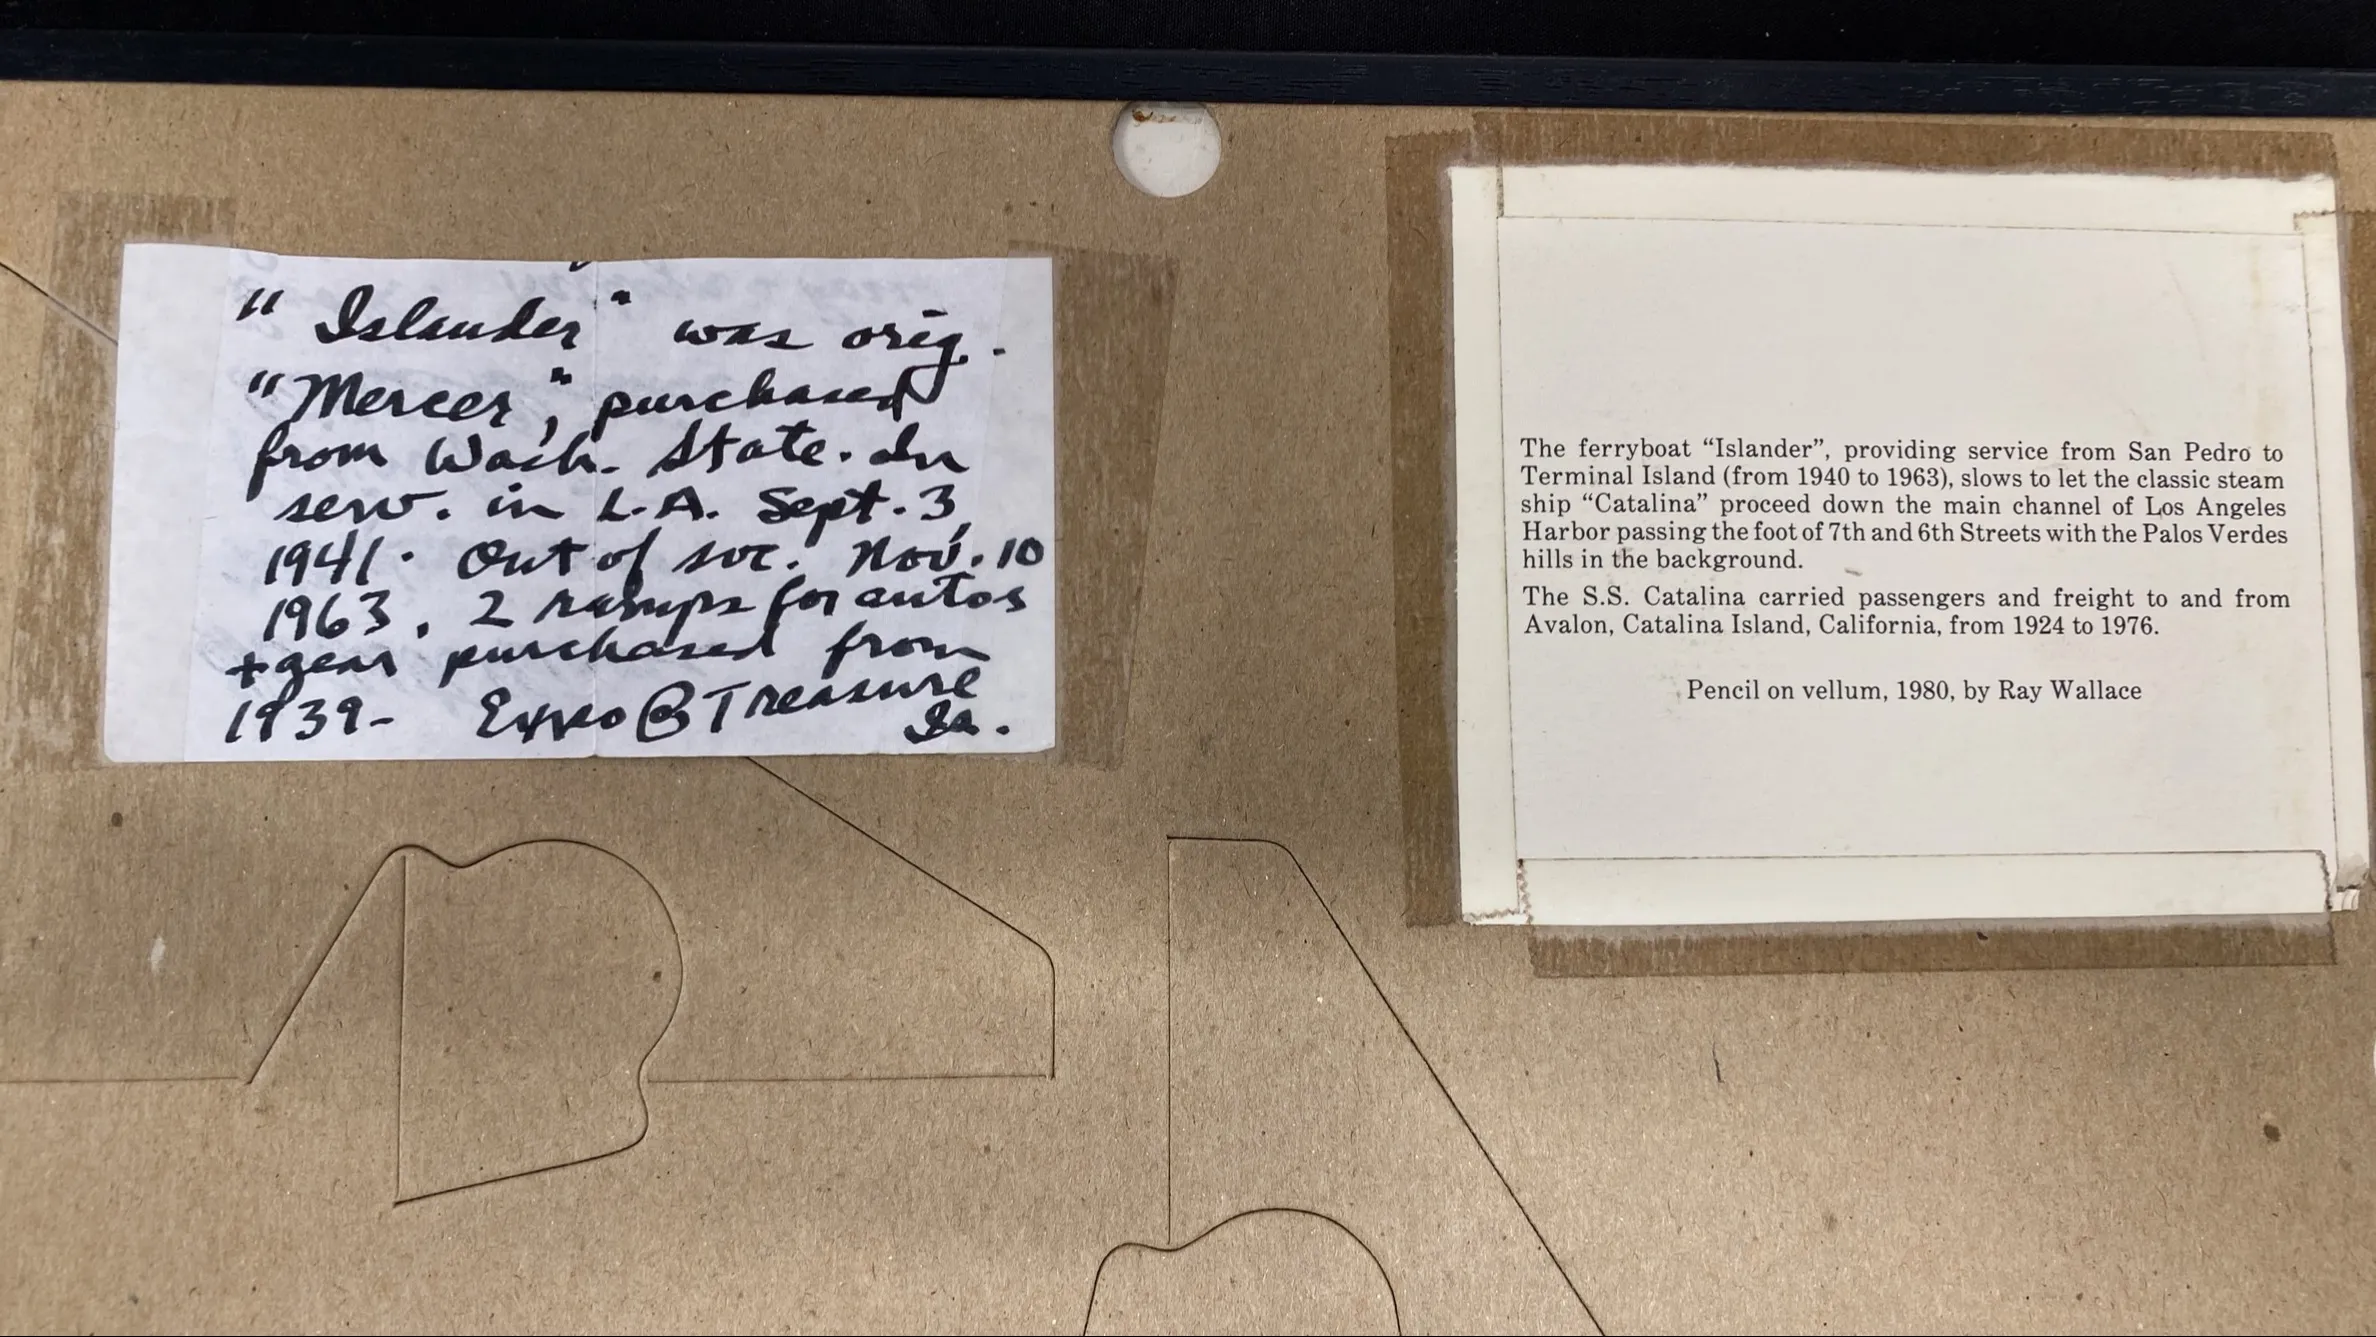 " Islander" was orig.
"Mercer", purchased
from Wash. State. In
serv. in L.A. Sept. 3,
1941. Out of svc. Nov. 10
1963. 2 ramps for autos
+ gear purchased from
1939- Expo @ Treasure
Is.
The ferryboat “Islander”, providing service from San Pedro to
Terminal Island (from 1940 to 1963), slows to let the classic steam
ship “Catalina” proceed down the main channel of Los Angeles
Harbor passing the foot of 7th and 6th Streets with the Palos Verdes
hills in the background.
The S.S. Catalina carried passengers and freight to and from
Avalon, Catalina Island, California, from 1924 to 1976.
Pencil on vellum, 1980, by Ray Wallace